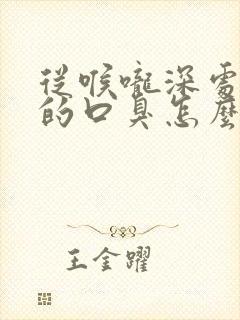 從喉嚨深處
的口臭怎麼
王金躍